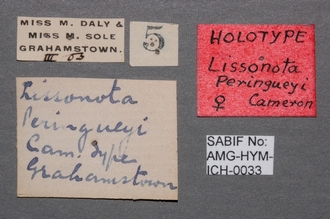 MISS M. DALY &
MISS M. SOLE
GRAHAMSTOWN.
III 03
5
HOLOTYPE
Lissonota
Peringueyi
♀ Cameron
Lissonota
Peringueyi
Cam. Type
Grahamstown
SABIF No:
AMG-HYM-
ICH-0033